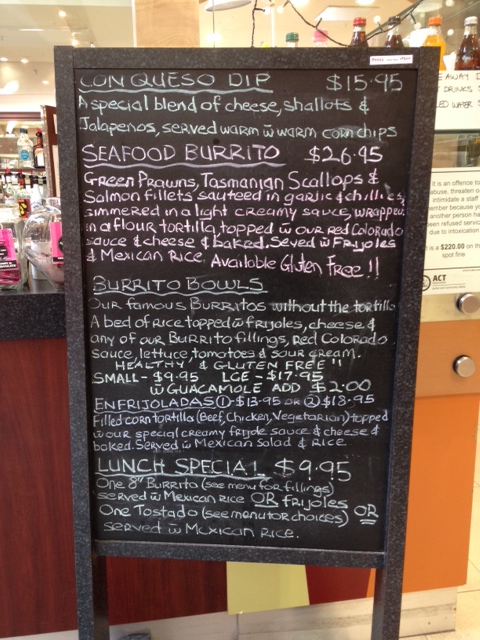 CON QUESO DIP $15.95
A special blend of cheese, shallots &
Jalapenos, served warm w warm corn chips
SEAFOOD BURRITO $26.95
Green Prawns, Tasmanian Scallops &
Salmon fillets sauteed in garlic & chillies,
simmered in a light creamy sauce, wrapped
in a flour tortilla, topped w our red Colorado
sauce & cheese & baked. Seved w Frijoles
& Mexican Rice. Available Gluten Free!!
BURRITO BOWLS
Our famous Burritos without the tortilla
A bed of rice topped w frijoles, cheese &
any of our Burrito fillings, red Colorado
sauce, lettuce, tomatoes & sour cream.
HEALTHY & GLUTEN FREE!!
SMALL- $9.95 LGE- $17.95
w GUACAMOLE ADD $2.00
ENFRIJOLADAS ① $13.95 OR ② $18.95
Filled corn tortilla (Beef, Chicken, Vegetarian) topped
w our special creamy frijole sauce & cheese &
baked. Served w Mexican Salad & Rice
LUNCH SPECIAL $9.95
One 8" Burrito (see menu for fillings)
served w Mexican rice OR frijoles OR
One Tostado (see menu for choices)
served w Mexican Rice.
it is an offence to
abuse, threaten or
intimidate a staff
member because yo
another person ha
been refused servi
due to intoxication.
is a $220.00 on th
spot fine
ACT